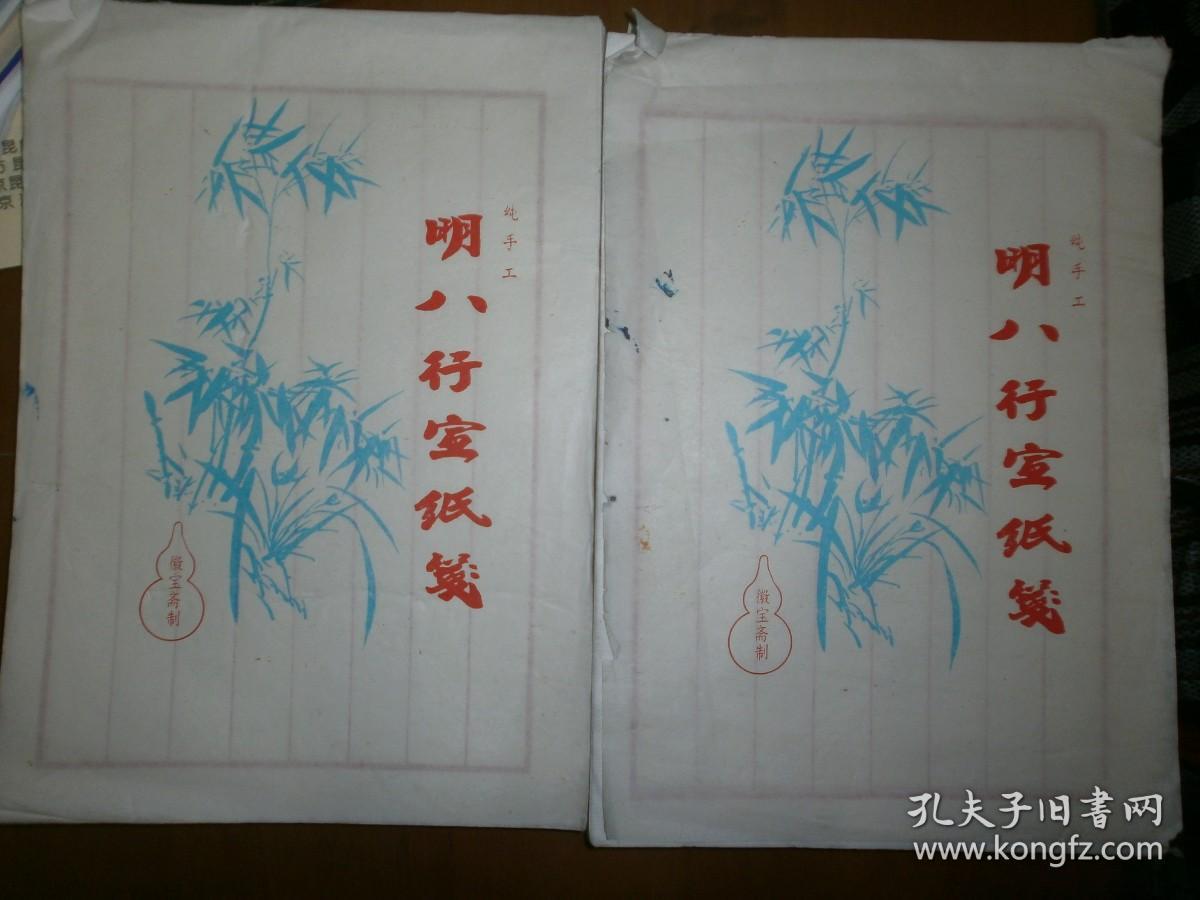 纯手工
明八行宣纸笺
徽宝斋制
纯手工
明八行宣纸笺
徽宝斋制
孔夫子旧书网
www.kongfz.com